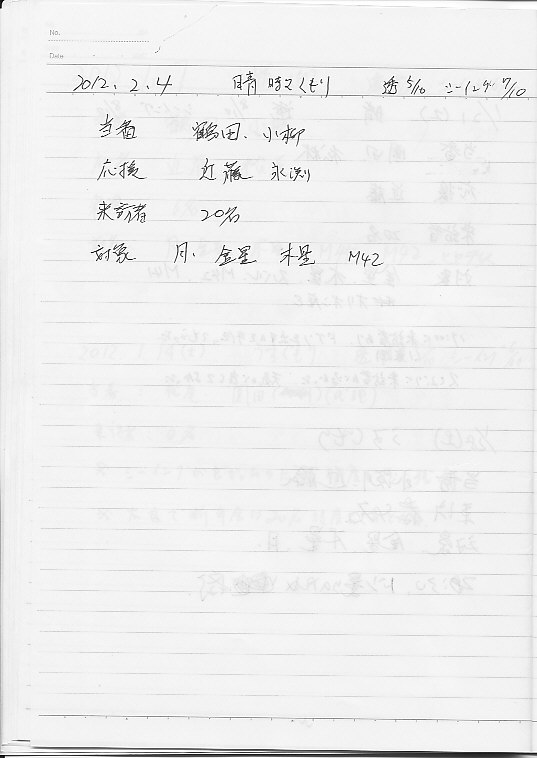 No.
Date
2012. 2. 4 晴時々くもり 透5/10 シーイング7/10
当番 鶴田、小柳
応援 近藤 永渕
来訪者 20名
対象 月、金星 木星 M42